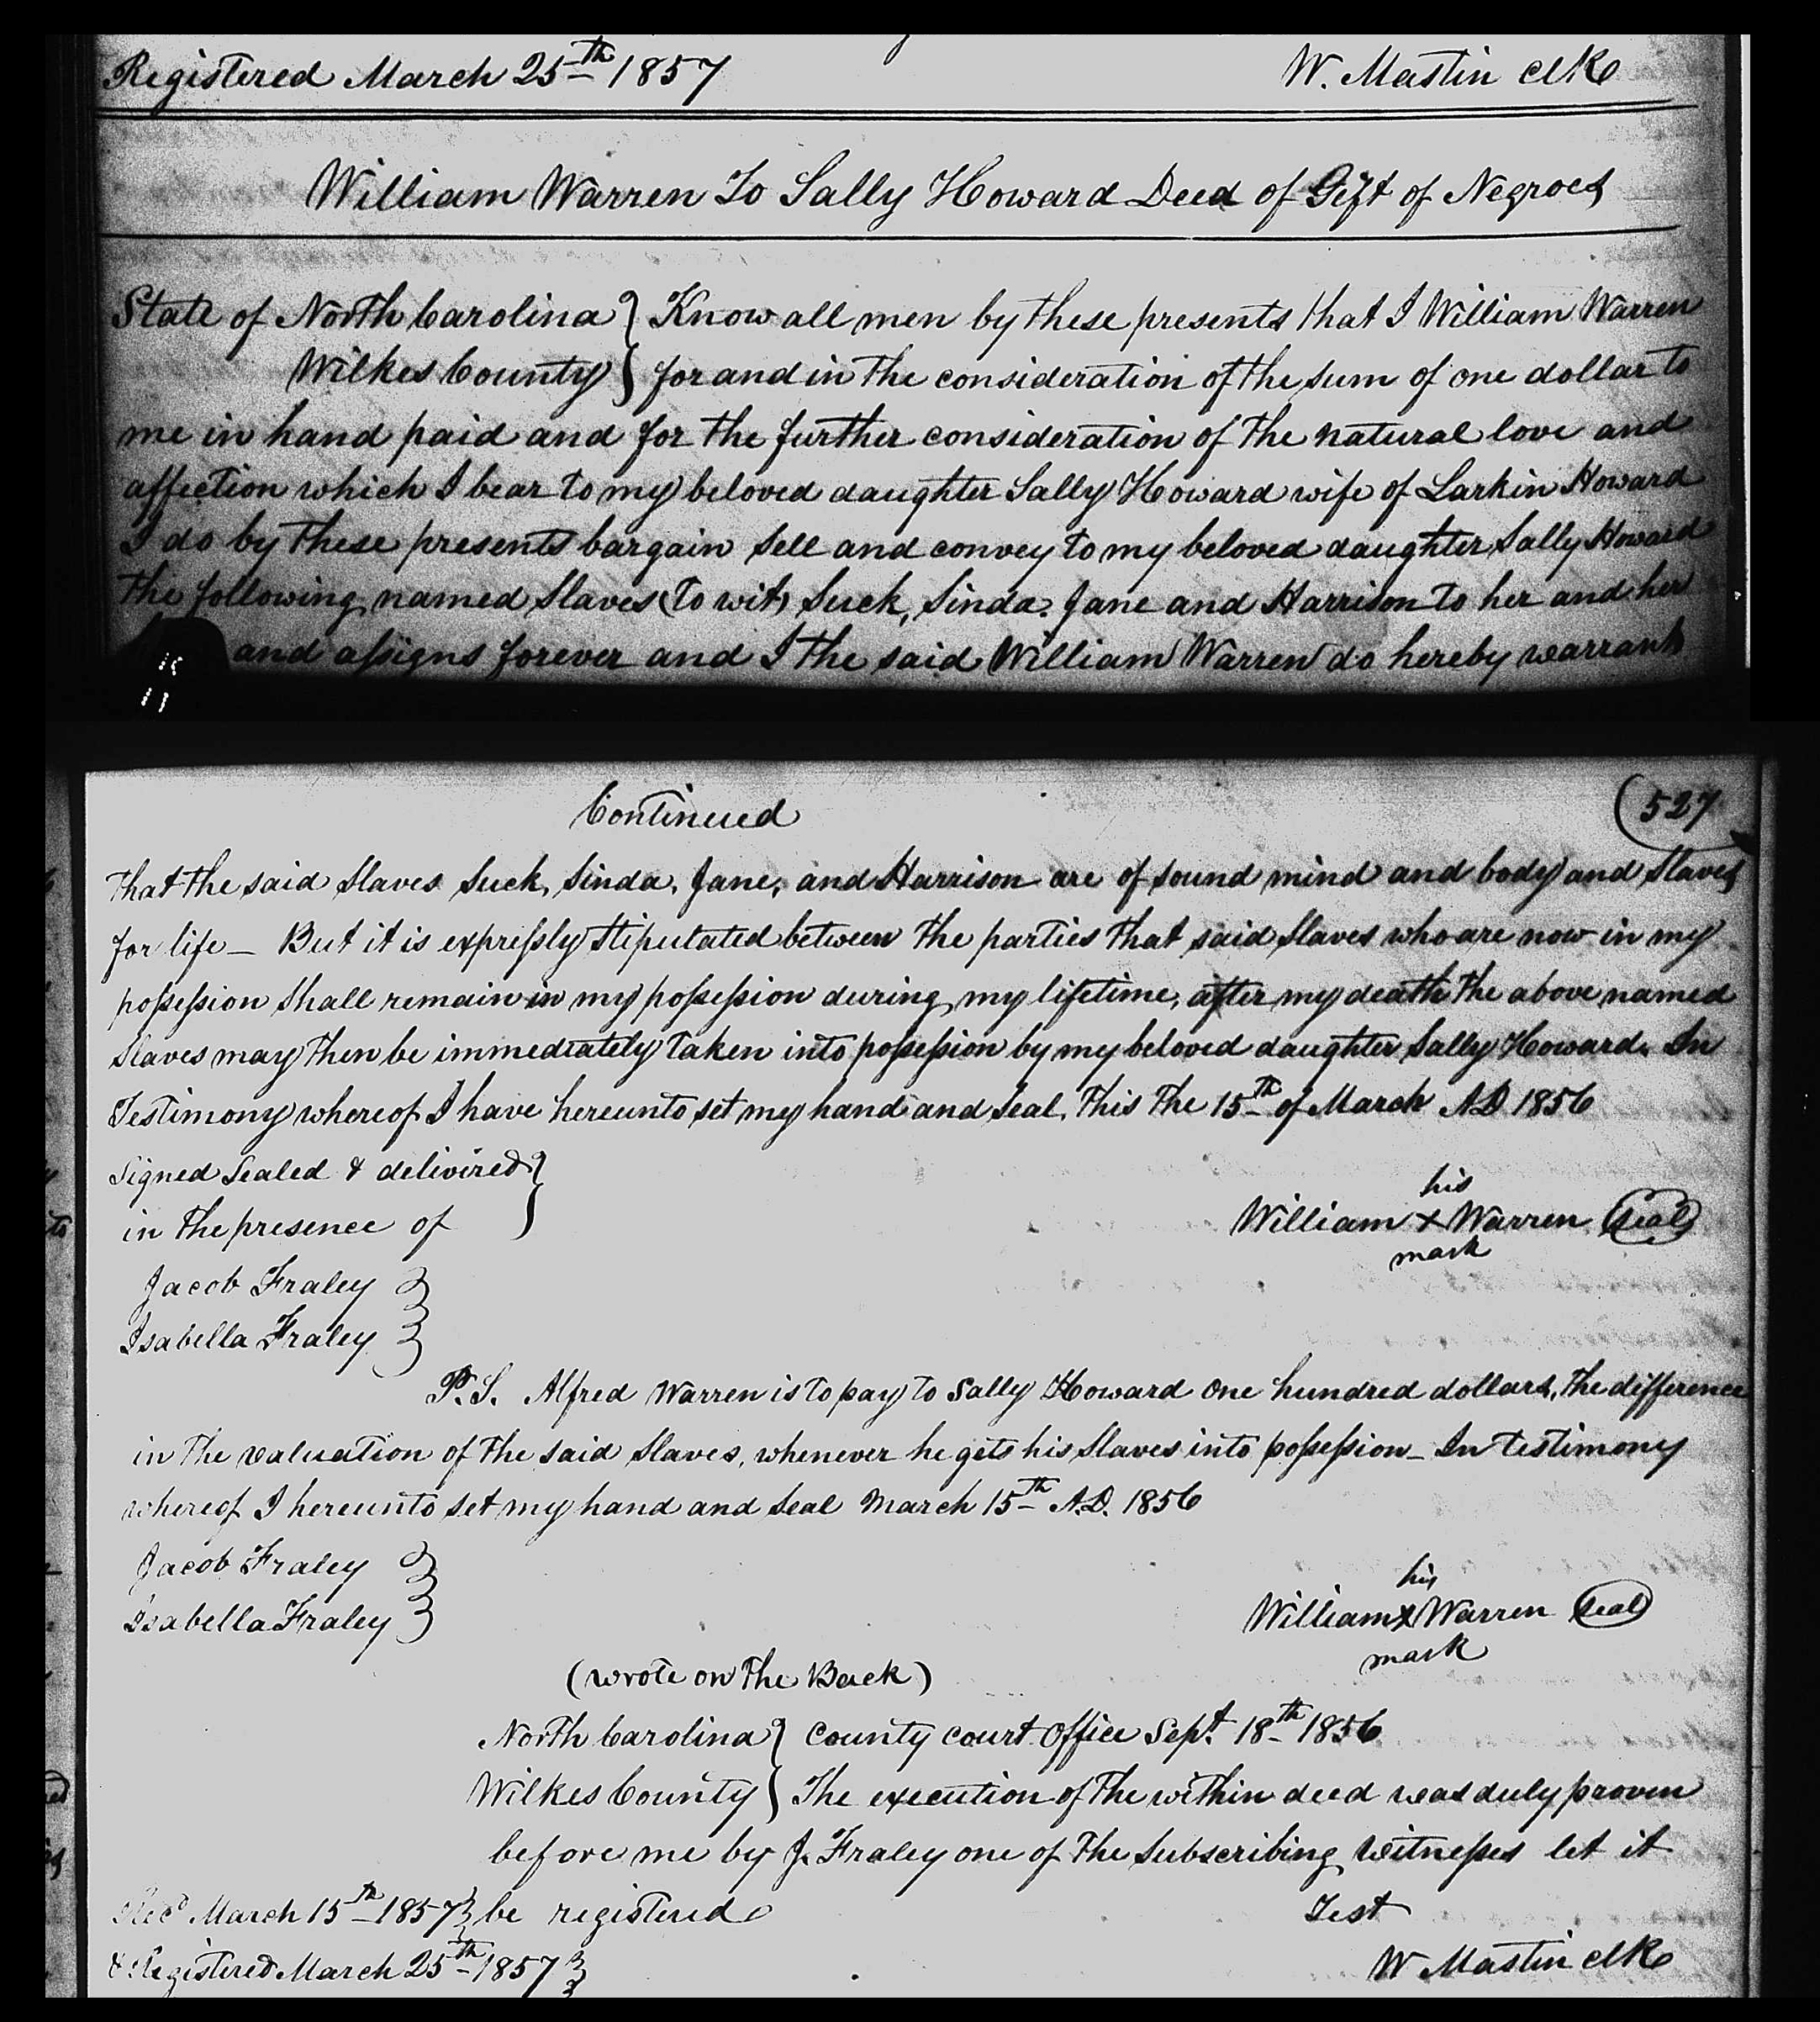 Registered March 25th 1857 W. Mastin clk
William Warren To Sally Howard Deed of Gift of Negroes
State of North Carolina } Know all men by these presents that I William Warren
Wilkes County } for and in the consideration of the sum of one dollar to
me in hand paid and for the further consideration of the natural love and
affection which I bear to my beloved daughter Sally Howard wife of Larkin Howard
I do by these presents bargain sell and convey to my beloved daughter Sally Howard
the following named Slaves (to wit) Suck, Sinda, Jane and Harrison to her and her
and assigns forever and I the said William Warren do hereby warrant
Continued (527
that the said Slaves Suck, Sinda, Jane, and Harrison are of sound mind and body and Slaves
for life – But it is expressly stipulated between the parties that said slaves who are now in my
possession shall remain in my possession during my lifetime, after my death the above named
Slaves may then be immediately taken into possession by my beloved daughter Sally Howard. In
Testimony whereof I have hereunto set my hand and seal, this the 15th of March AD 1856
Signed Sealed & delivired }
in the presence of }
his
William x Warren (seal)
mark
Jacob Fraley }
Isabella Fraley }
P.S. Alfred Warren is to pay to Sally Howard one hundred dollars, the difference
in the valuation of the said Slaves, whenever he gets his Slaves into possession – In testimony
whereof I hereunto set my hand and seal March 15th A.D. 1856
Jacob Fraley }
Isabella Fraley }
his
William x Warren (seal)
mark
(wrote on the Back)
North Carolina } County court office Sept 18th 1856
Wilkes County } The execution of the within deed was duly proven
before me by J. Fraley one of the subscribing witnesses let it
Recd March 15th 1857 } be registered Test
& Registered March 25th 1857 } W Mastin clk